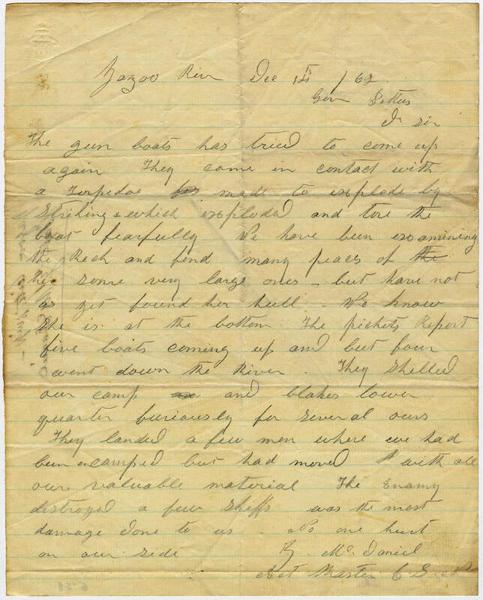 Yazoo River Dec 14 /62
Gov Pettus
Dr Sir
The gun boats has tried to come up
again They came in contact with
a Torpedoe made to explode by
Striking & which exploded and tore the
boat fearfully We have been examining
the Reck and find many peaces of the
her some very large ones - but have not
as yet found her hull We know
She is at the bottom The pickets Report
five boats coming up and but four
went down the River . They Shelled
our camp and blakes lower
quarter furiously for several ours
They landed a few men where we had
been encamped but had moved with all
our valuable material The Enemy
destroyed a few Skiffs was the most
damage done to us . No one hurt
on our side Z McDaniel
Act Master C S